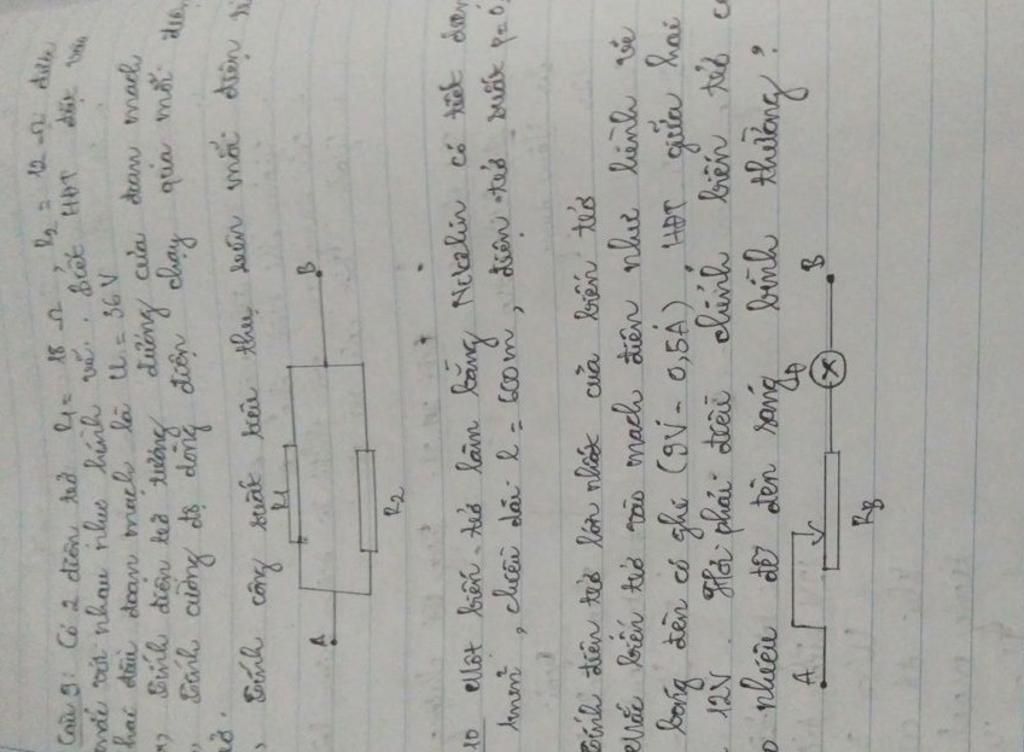 Câu 9: Có 2 điện trở R1 = 18 Ω, R2 = 12 Ω được
mắc với nhau như hình vẽ. Biết HĐT đặt vào
hai đầu đoạn mạch là U = 36 V
Tính điện trở tương đương của đoạn mạch
Tính cường độ dòng điện chạy qua mỗi điện
trở.
Tính công suất tiêu thụ trên mỗi điện
R1
A
B
R2
10 Một biến trở làm bằng Nikelin có tiết diện
1mm², chiều dài l = 600m, điện trở suất ρ = 0,
Tính điện trở lớn nhất của biến trở
Mắc biến trở vào mạch điện như hình vẽ
bóng đèn có ghi (9V - 0,5A) HĐT giữa hai
12V. Hỏi phải điều chỉnh biến trở có
nhiêu để đèn sáng bình thường?
A
Đ
B
Rb